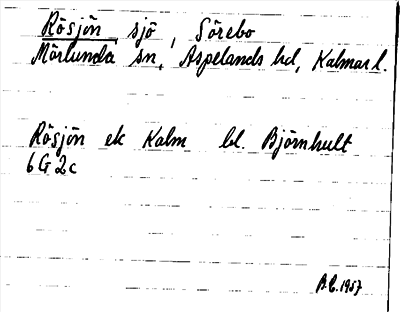 Rösjön, sjö, Sörebo
Mörlunda sn, Aspelands hd, Kalmar l.
Rösjön ek Kalm bl. Björnhult
6G2c
B.E. 1957